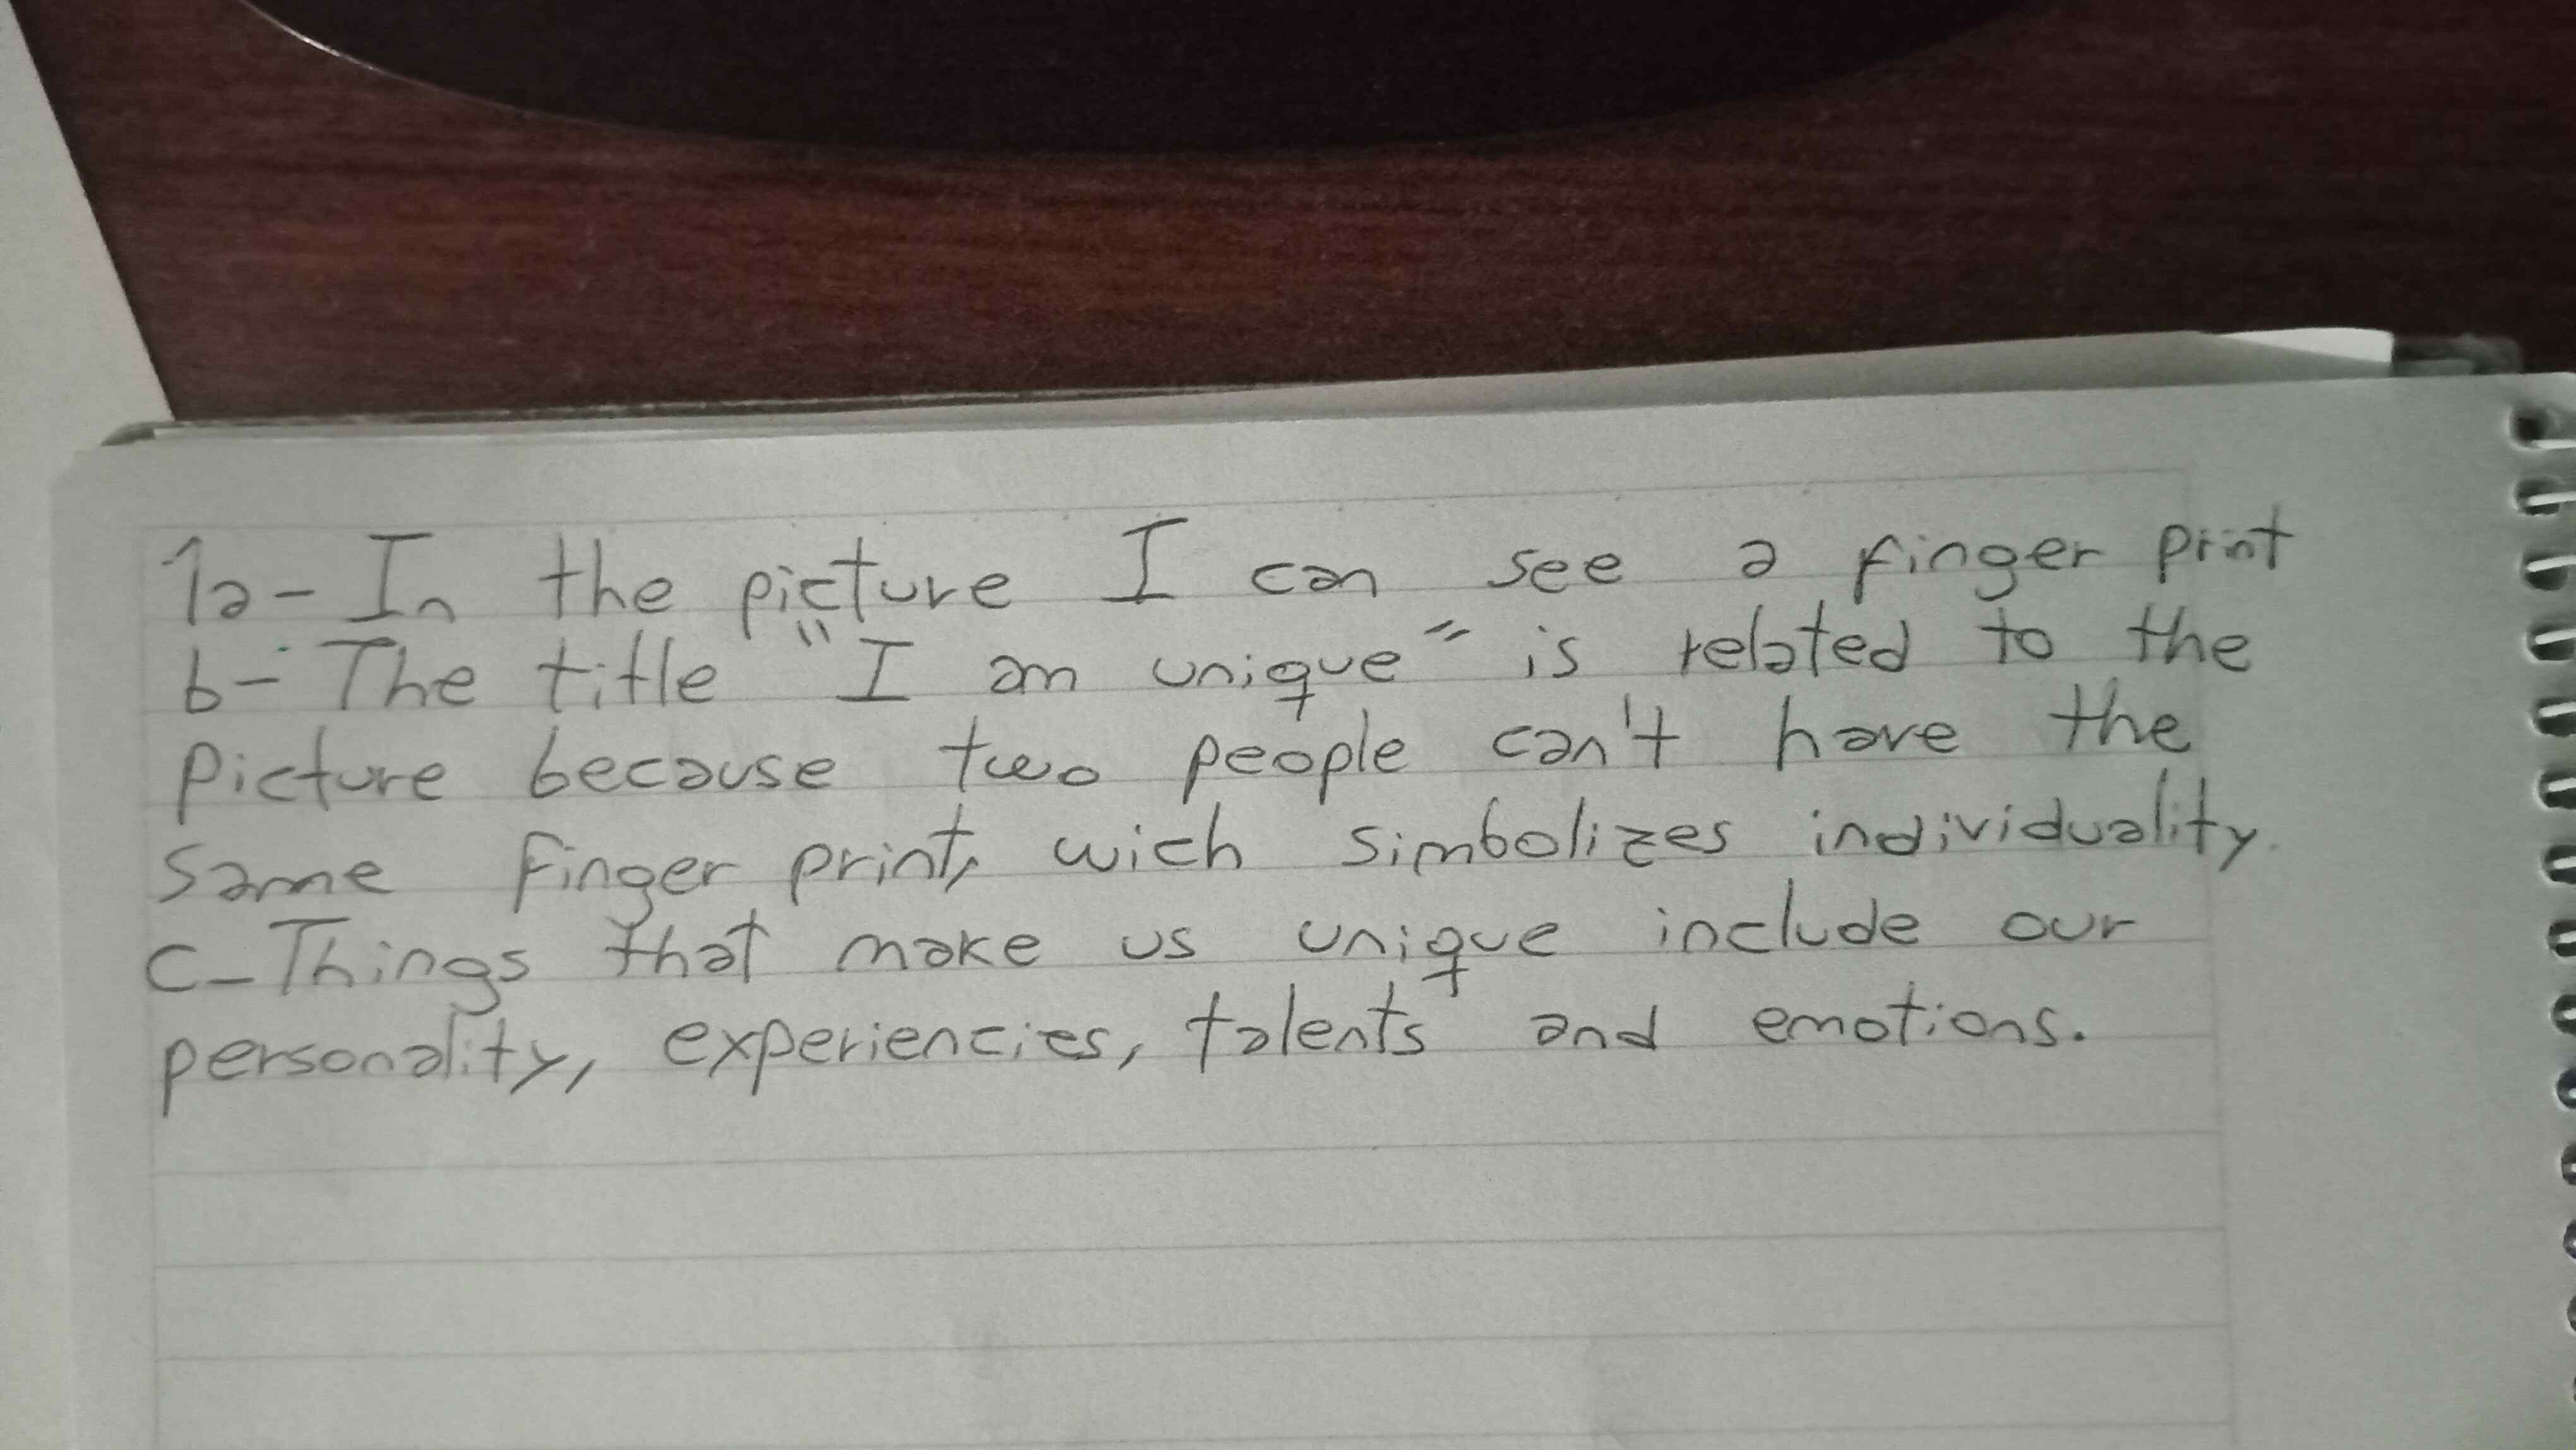 1a- In the picture I can see a finger print
b- The title "I am unique" is related to the
picture because two people can't have the
same finger print, wich simbolizes individuality.
c- Things that make us unique include our
personality, experiencies, talents and emotions.